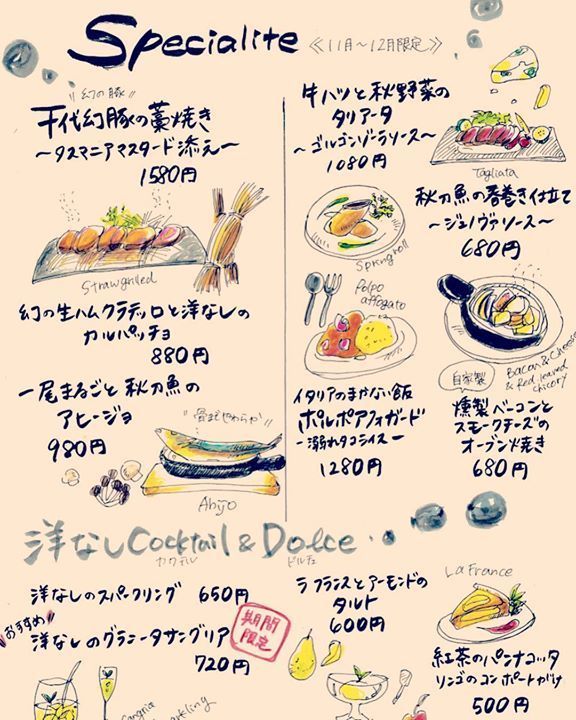 Specialite 《11月〜12月限定》
"幻の豚"
千代幻豚の藁焼き
〜タスマニアマスタード添え〜
1580円
Strawgrilled
幻の生ハムクラテッロと洋なしの
カルパッチョ
880円
一尾まるごと秋刀魚の
アヒージョ
980円
"骨までやわらか"
Ahijo
牛ハツと秋野菜の
タリアータ
〜ゴルゴンゾーラソース〜
1080円
Tagliata
秋刀魚の春巻き仕立て
〜ジェノヴァソース〜
680円
Springroll
Polpo
affogato
イタリアのまかない飯
ポルポアフォガード
-溺れタコライス-
1280円
Bacon & Cheese
& Red leaved
chicory
自家製
燻製ベーコンと
スモークチーズの
オーブン焼き
680円
洋なしCocktail & Dolce
カクテル
ドルチェ
洋なしのスパークリング 650円
おすすめ
洋なしのグラニータサングリア
720円
期間
限定
Sangria
Sparkling
ラフランスとアーモンドの
タルト
600円
La France
紅茶のパンナコッタ
リンゴのコンポートがけ
500円